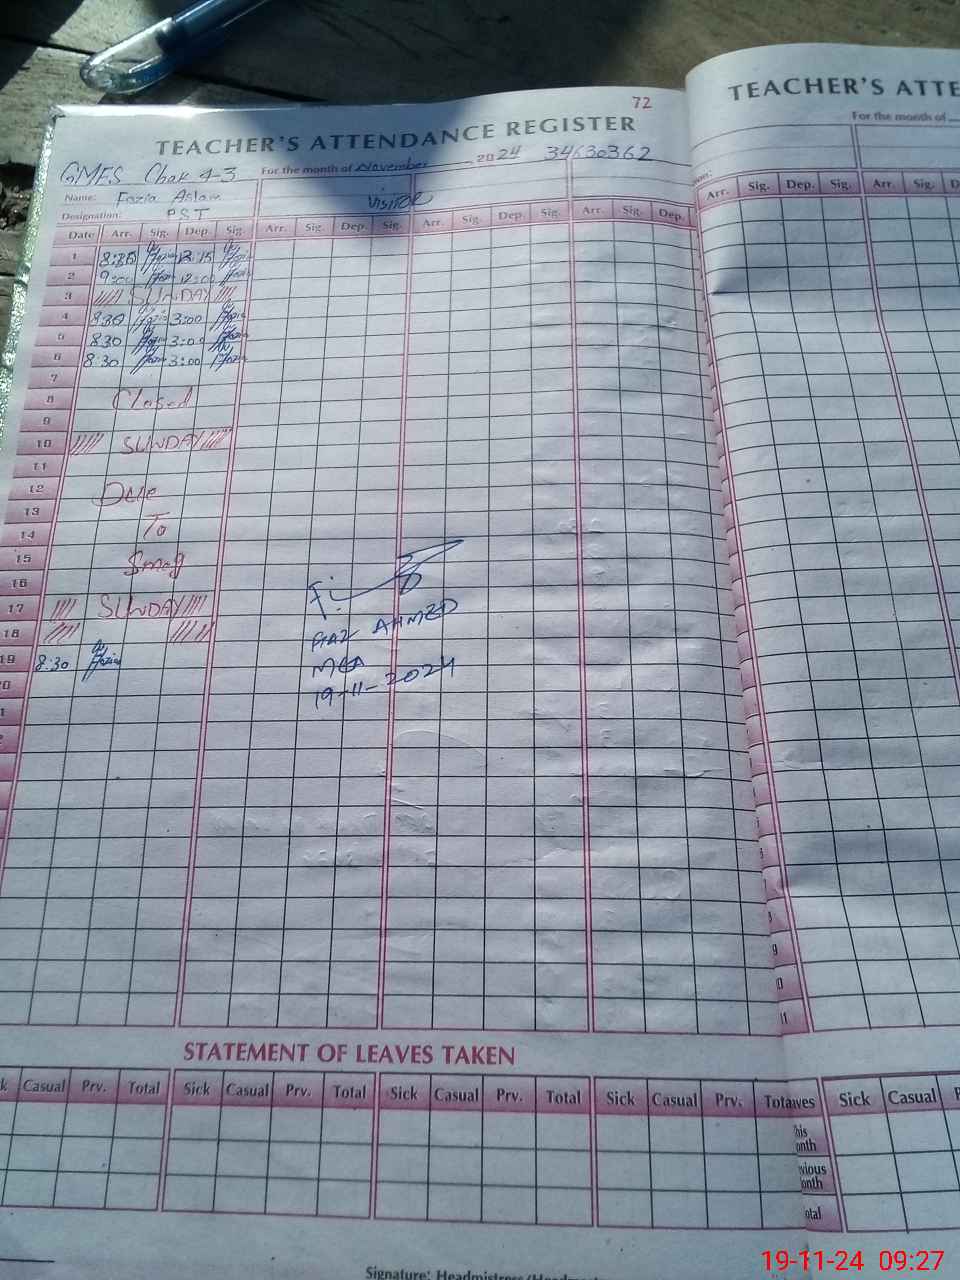 72
TEACHER'S ATTENDANCE REGISTER
TEACHER'S ATTE
GMES Chak 4-3
For the month of November 2024 34630362
For the month of
Name: Fozia Aslam
VISITOR
Designation: PST
Date Arr. Sig. Dep. Sig. Arr. Sig. Dep. Sig. Arr. Sig. Dep. Sig. Arr. Sig. Dep.
Arr. Sig. Dep. Sig. Arr. Sig. D
1 8:30 Fozia 12:15 Fozia
2 9:00 Fozia 12:00 Fozia
3 SUNDAY
4 8:30 Fozia 3:00 Fozia
5 8:30 Fozia 3:00 Fozia
6 8:30 Fozia 3:00 Fozia
7
8 Closed
9
10 SUNDAY
11
12 Due
13
14 To
15
16 Smog
17 SUNDAY
18
19 8:30 Fozia
AHMED
MEA
19-11-2024
9
10
11
STATEMENT OF LEAVES TAKEN
k Casual Prv. Total Sick Casual Prv. Total Sick Casual Prv. Total Sick Casual Prv. Tota
aves Sick Casual P
his onth
vious onth
otal
Signature: Headmistress
19-11-24 09:27